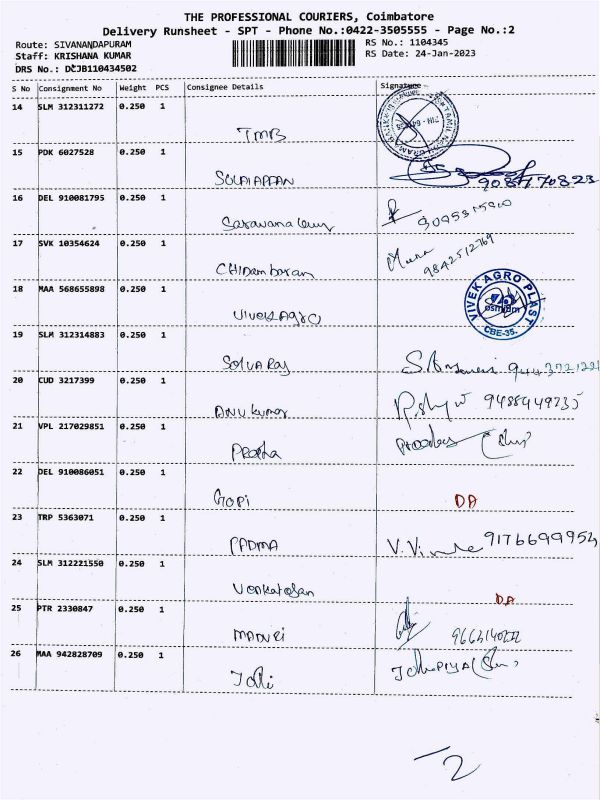 THE PROFESSIONAL COURIERS, Coimbatore
Delivery Runsheet - SPT - Phone No.:0422-3505555 - Page No.:2
Route: SIVANANDAPURAM
RS No.: 1104345
Staff: KRISHANA KUMAR
RS Date: 24-Jan-2023
DRS No.: DCJB110434502
S No Consignment No Weight PCS Consignee Details Signature
14 SLM 312311272 0.250 1 TMB
15 PDK 6027528 0.250 1 SOLAIAPPAN
16 DEL 910081795 0.250 1
17 SVK 10354624 0.250 1 CHIDambaran 9842512769
18 MAA 568655898 0.250 1 VIVEK AgRO VIVEK AGRO PLAST CBE-35.
19 SLM 312314883 0.250 1 SelvaRaj
20 CUD 3217399 0.250 1 ANUkumar 9488449735
21 VPL 217029851 0.250 1
22 DEL 910086051 0.250 1 GOPi DA
23 TRP 5363071 0.250 1 PADMA 9176699952
24 SLM 312221550 0.250 1 Venkatesan DA
25 PTR 2330847 0.250 1
26 MAA 942828709 0.250 1
2